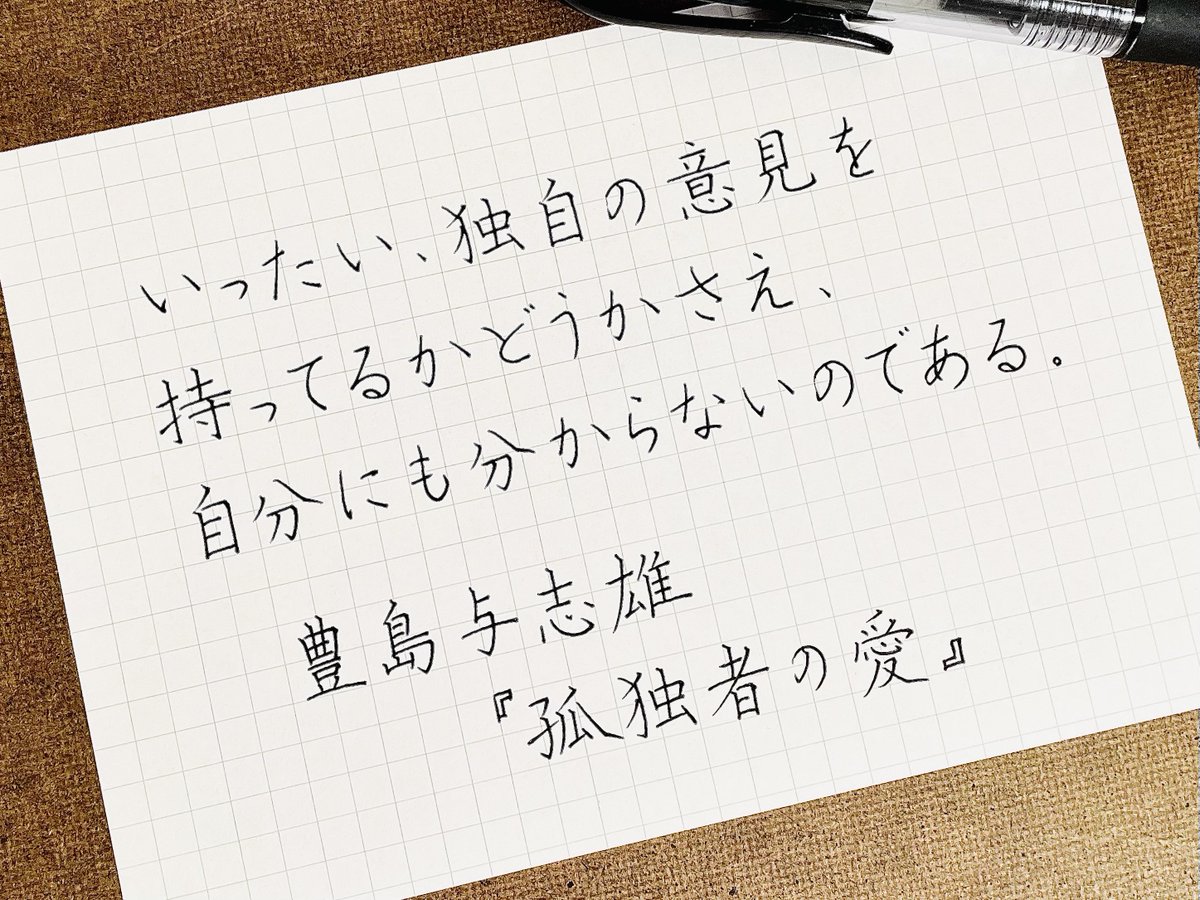 いったい、独自の意見を
持ってるかどうかさえ、
自分にも分からないのである。
豊島与志雄
『孤独者の愛』